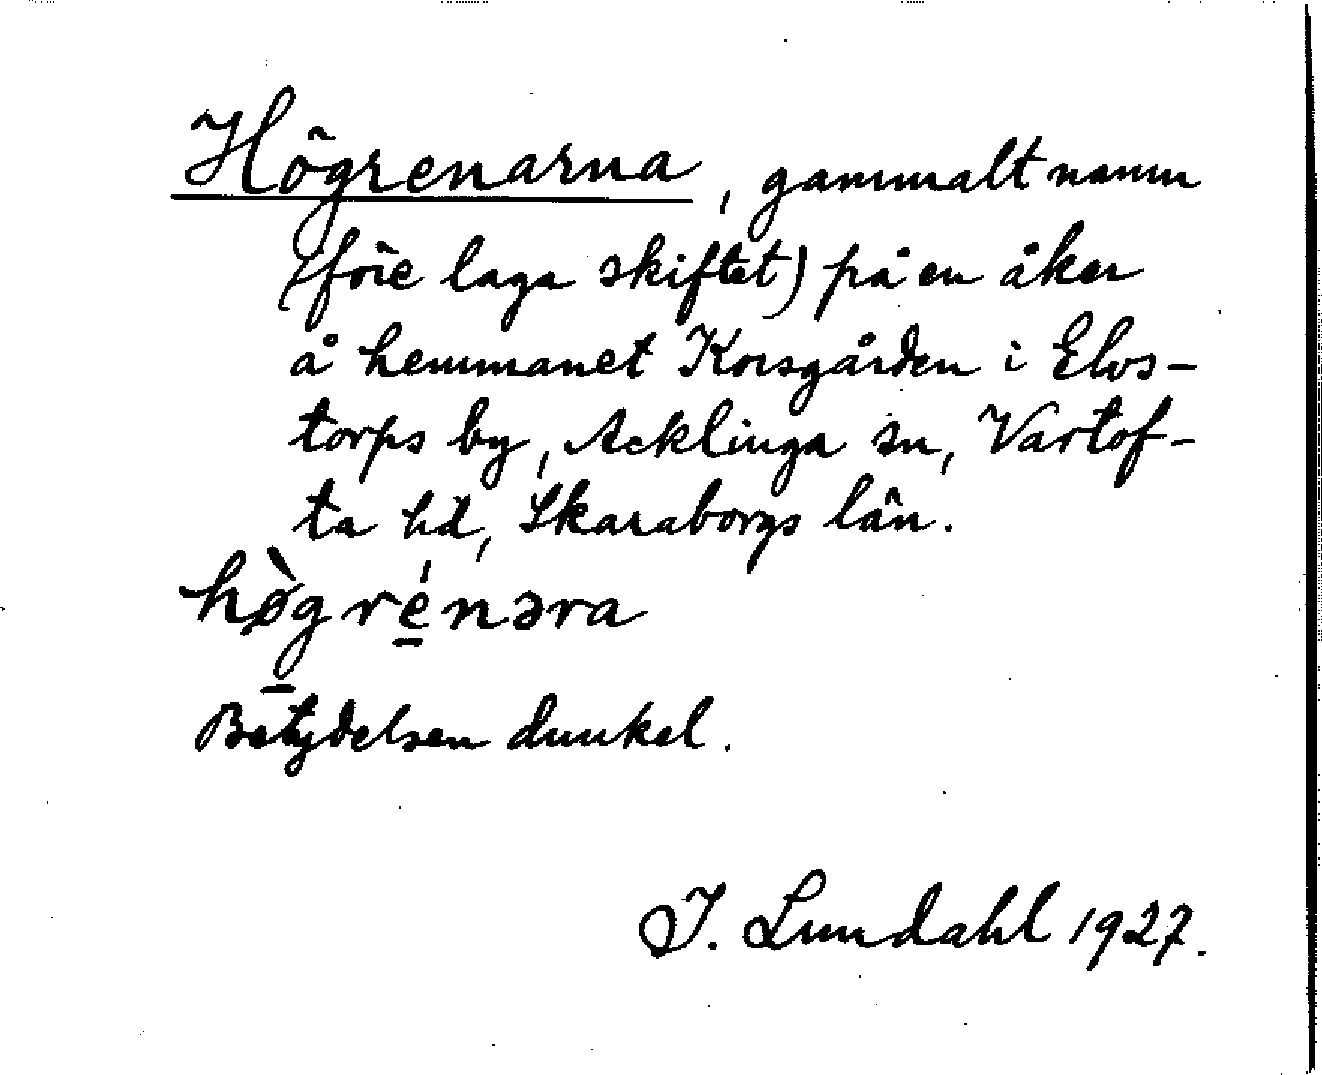 Högrenarna, gammalt namn
(före laga skiftet) på en åker
å hemmanet Korsgården i Elvs-
torps by, Acklinga sn, Vartof-
ta hd, Skaraborgs län.
hø̀g̱ré̱nəra
Betydelsen dunkel.
J. Lundahl 1927.